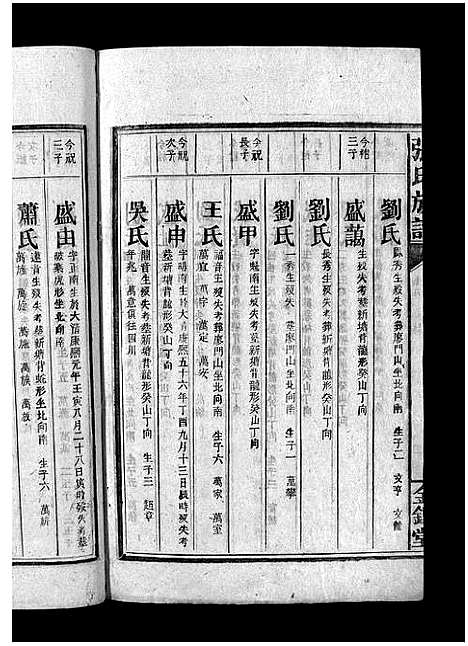 氏族譜
金鑑堂
劉氏 秀生殁失考葬廖門山坐北向南 生子二 文亨 文
今 三子
盛萬 生殁失考葬新塘背龍形癸山丁向
劉氏 長秀生殁失考葬新塘背龍形癸山丁向
劉氏 一秀生殁失 葬廖門山坐北向南 生子一 萬寧
今祝長子
盛甲 字魁南生殁失考葬新塘背龍形癸山丁向
王氏 福音生殁失考葬廖門山坐北向南 生子六 萬家 萬室
萬宜 萬 萬定 萬安
今祝次子
盛申 字 南生於大清康熙五十六年丁酉九月十三日辰時殁失考
葬新塘背龍形癸山丁向
吳氏 龍音生殁失考葬新塘背龍形癸山丁向 生子三 章
萬 萬意俱往四川
今祝三子
盛由 字正南生於大清康熙元年壬寅八月二十八日寅時殁失考葬
虎形坐北向南
蕭氏 遠音生殁失考葬新塘背蛇形坐北向南 生子六 萬新
萬 萬施 萬 萬